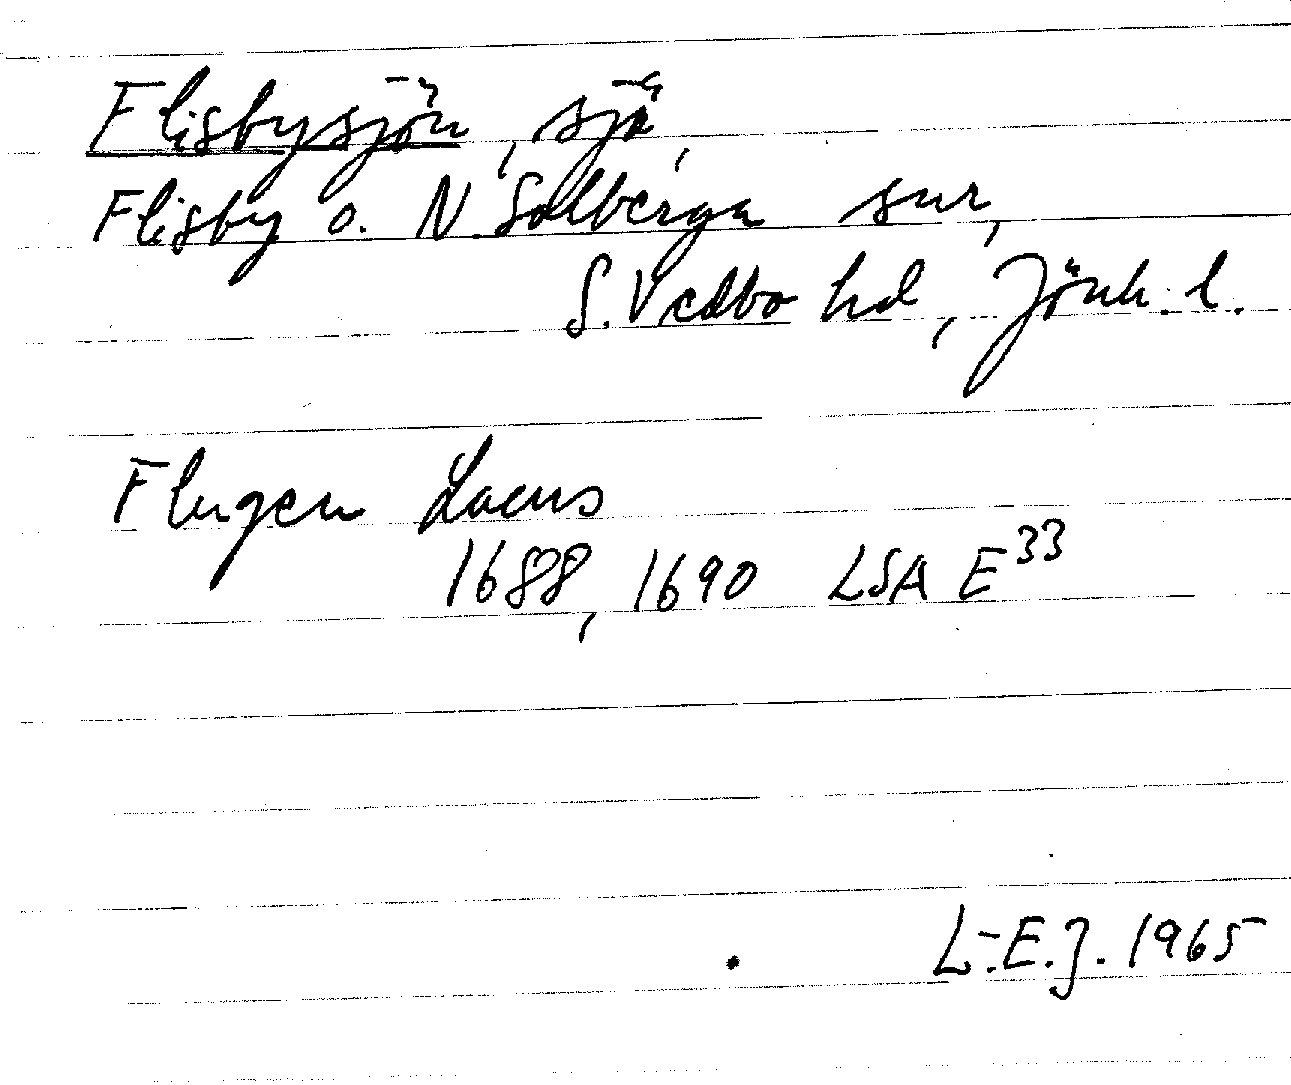 Flisbysjön, sjö,
Flisby o. N. Solberga snr,
S. Vedbo hd, Jönk. l.
Flugen Lacus
1688, 1690 LSA E33
L-E.J. 1965